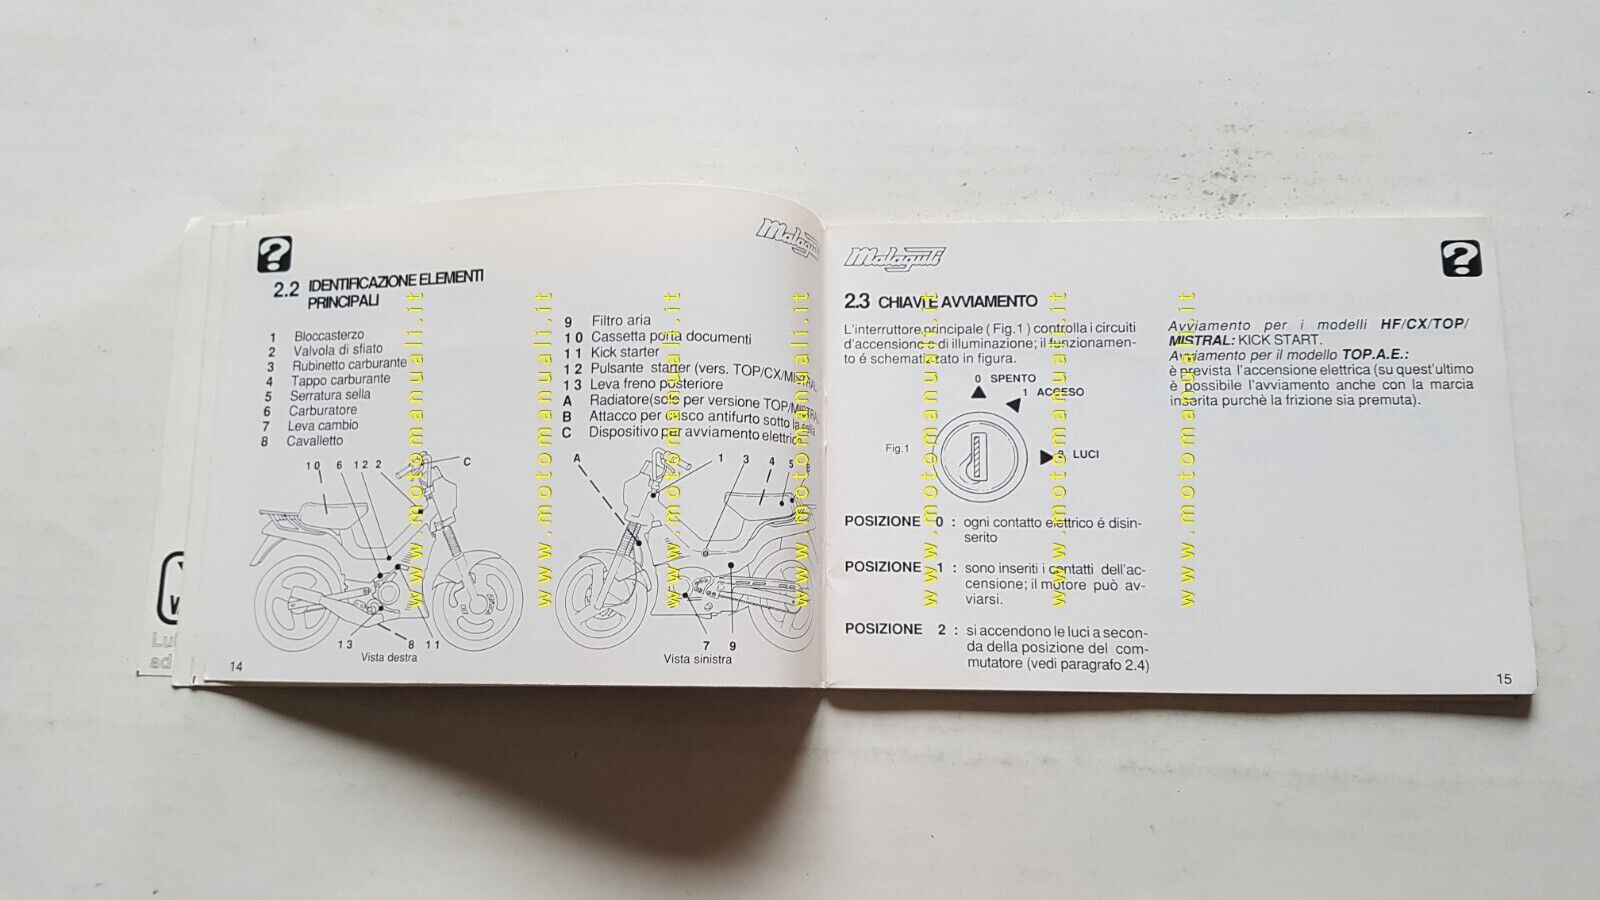 Malaguti
2.2 IDENTIFICAZIONE ELEMENTI
PRINCIPALI
1 Bloccasterzo
2 Valvola di sfiato
3 Rubinetto carburante
4 Tappo carburante
5 Serratura sella
6 Carburatore
7 Leva cambio
8 Cavalletto
9 Filtro aria
10 Cassetta porta documenti
11 Kick starter
12 Pulsante starter (vers. TOP/CX/MISTRAL
13 Leva freno posteriore
A Radiatore(solo per versione TOP/MISTRAL
B Attacco per casco antifurto sotto la sella
C Dispositivo per avviamento elettrico
10 6 12 2 C
13 8 11
Vista destra
A 1 3 4 5 B
7 9
Vista sinistra
14
Malaguti
2.3 CHIAVI E AVVIAMENTO
L'interruttore principale ( Fig.1 ) controlla i circuiti
d'accensione e di illuminazione; il funzionamen-
to é schematizzato in figura.
0 SPENTO
1 ACCESO
Fig.1
2 LUCI
POSIZIONE 0 : ogni contatto elettrico é disin-
serito
POSIZIONE 1 : sono inseriti i contatti dell'ac-
censione; il motore può av-
viarsi.
POSIZIONE 2 : si accendono le luci a secon-
da della posizione del com-
mutatore (vedi paragrafo 2.4)
Avviamento per i modelli HF/CX/TOP/
MISTRAL: KICK START.
Avviamento per il modello TOP.A.E.:
è prevista l'accensione elettrica (su quest'ultimo
è possibile l'avviamento anche con la marcia
inserita purchè la frizione sia premuta).
15
www.motomanuali.it
www.motomanuali.it
www.motomanuali.it
www.motomanuali.it
www.motomanuali.it
www.motomanuali.it
www.motomanuali.it